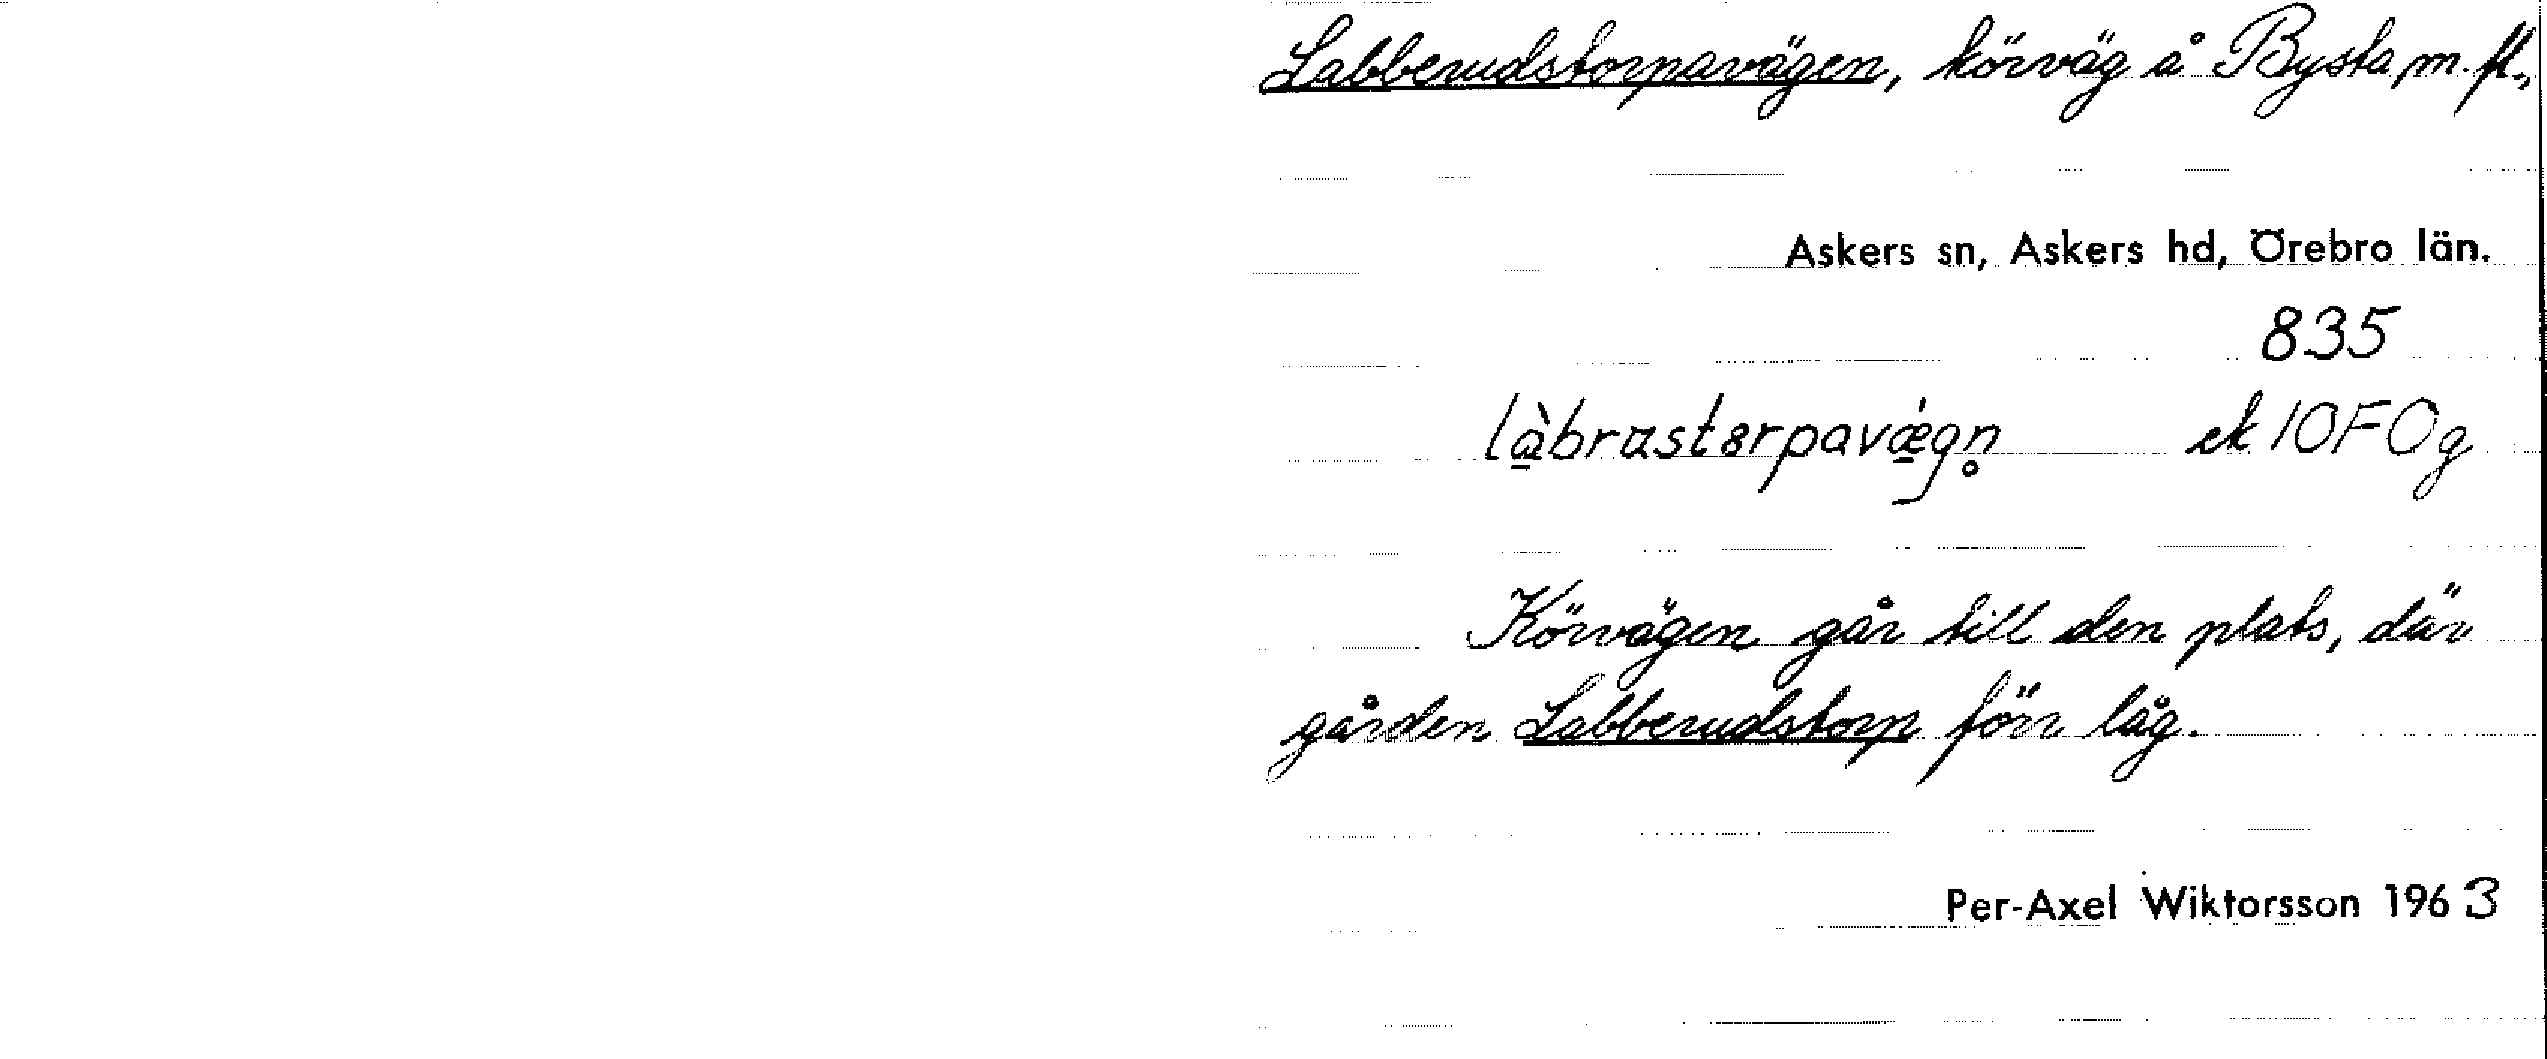 Labberudstorpavägen, körväg å Bysta m.fl.,
Askers sn, Askers hd, Örebro län.
835
làbrastørpavǽgn̥ ek 10F0g
Körvägen går till den plats, där
gården Labberudstorp förr låg.
Per-Axel Wiktorsson 1963